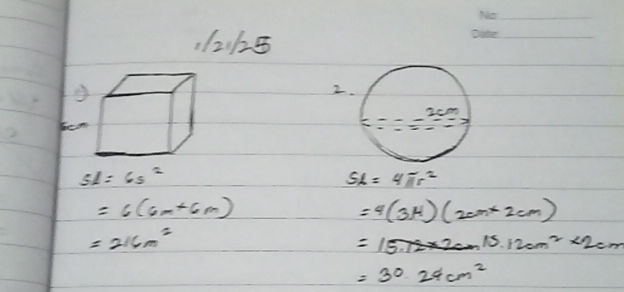 No:
Date:
1/21/25
1)
6cm
SA = 6s²
= 6(6m+6m)
= 216m²
2.
2cm
SA = 4πr²
= 4(3.14)(2cm+2cm)
= 15.12cm² × 2cm
= 30.24cm²